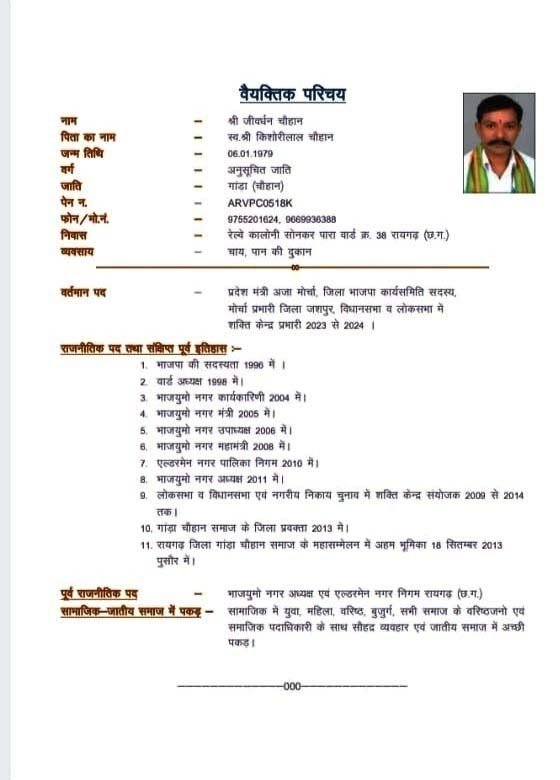 वैयक्तिक परिचय
नाम – श्री जीवर्धन चौहान
पिता का नाम – स्व.श्री किशोरीलाल चौहान
जन्म तिथि – 06.01.1979
वर्ग – अनुसूचित जाति
जाति – गांडा (चौहान)
पेन न. – ARVPC0518K
फोन/मो.नं. – 9755201624, 9669936388
निवास – रेल्वे कालोनी सोनकर पारा वार्ड क्र. 38 रायगढ़ (छ.ग.)
व्यवसाय – चाय, पान की दुकान
वर्तमान पद – प्रदेश मंत्री अजा मोर्चा, जिला भाजपा कार्यसमिति सदस्य,
मोर्चा प्रभारी जिला जशपुर, विधानसभा व लोकसभा में
शक्ति केन्द्र प्रभारी 2023 से 2024 ।
राजनीतिक पद तथा संक्षिप्त पूर्व इतिहास :–
1. भाजपा की सदस्यता 1996 में ।
2. वार्ड अध्यक्ष 1998 में।
3. भाजयुमो नगर कार्यकारिणी 2004 में।
4. भाजयुमो नगर मंत्री 2005 में।
5. भाजयुमो नगर उपाध्यक्ष 2006 में।
6. भाजयुमो नगर महामंत्री 2008 में।
7. एल्डरमेन नगर पालिका निगम 2010 में।
8. भाजयुमो नगर अध्यक्ष 2011 में।
9. लोकसभा व विधानसभा एवं नगरीय निकाय चुनाव में शक्ति केन्द्र संयोजक 2009 से 2014
तक।
10. गांड़ा चौहान समाज के जिला प्रवक्ता 2013 मे।
11. रायगढ़ जिला गांडा चौहान समाज के महासम्मेलन में अहम भूमिका 18 सितम्बर 2013
पुसौर में।
पूर्व राजनीतिक पद – भाजयुमो नगर अध्यक्ष एवं एल्डरमेन नगर निगम रायगढ़ (छ.ग.)
सामाजिक–जातीय समाज में पकड़ – सामाजिक में युवा, महिला, वरिष्ठ, बुजुर्ग, सभी समाज के वरिष्ठजनो एवं
समाजिक पदाधिकारी के साथ सौहद्र व्यवहार एवं जातीय समाज में अच्छी
पकड़।
–000–